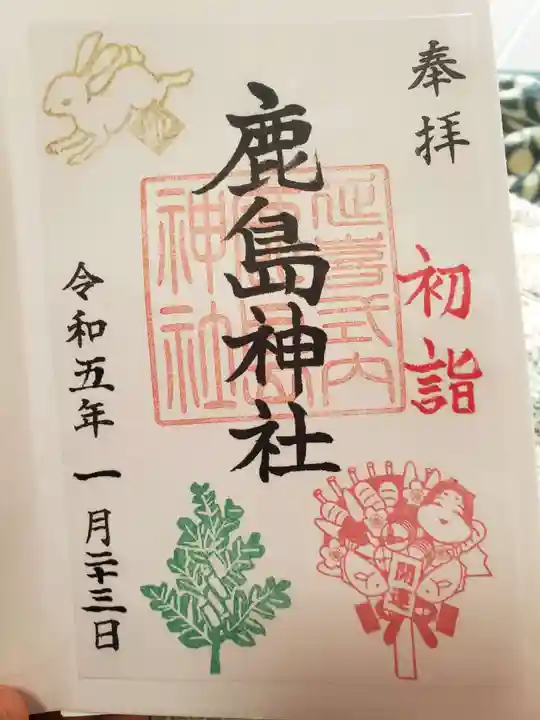 奉拝
初詣
延喜式内
鹿島
神社
鹿島神社
令和五年一月二十三日
開運